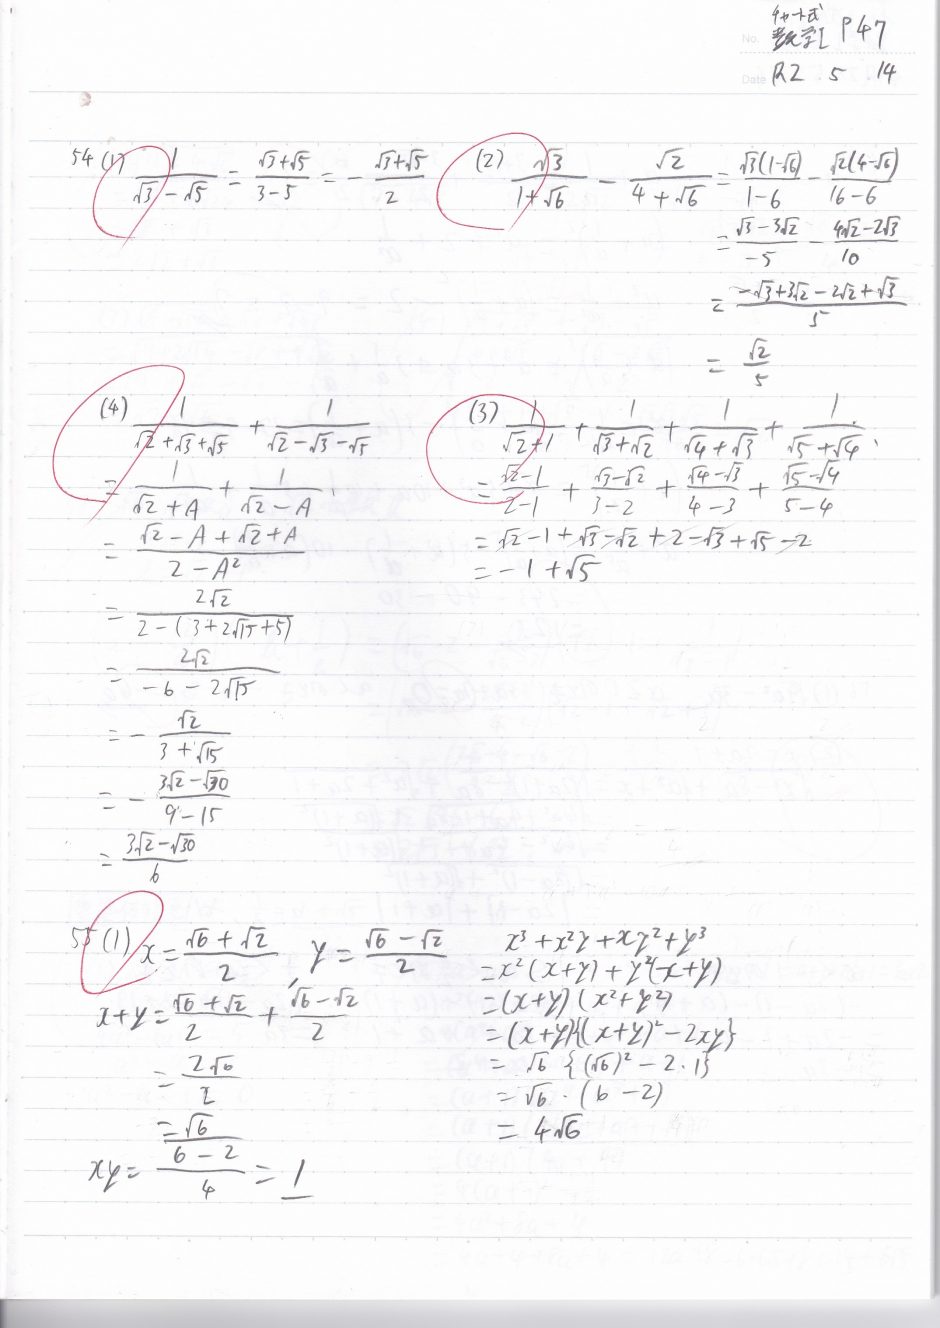 チャート式
No. 数学I P47
Date R2 5 14
54 (1) 1/(√3-√5) = (√3+√5)/(3-5) = -(√3+√5)/2
(2) √3/(1+√6) - √2/(4+√6) = √3(1-√6)/(1-6) - √2(4-√6)/(16-6)
= (√3-3√2)/-5 - (4√2-2√3)/10
= (-√3+3√2-2√2+√3)/5
= √2/5
(4) 1/(√2+√3+√5) + 1/(√2-√3-√5)
= 1/(√2+A) + 1/(√2-A)
= (√2-A+√2+A)/(2-A²)
= 2√2/(2-(3+2√15+5))
= 2√2/(-6-2√15)
= -√2/(3+√15)
= -(3√2-√30)/(9-15)
= (3√2-√30)/6
(3) 1/(√2+1) + 1/(√3+√2) + 1/(√4+√3) + 1/(√5+√4)
= (√2-1)/(2-1) + (√3-√2)/(3-2) + (√4-√3)/(4-3) + (√5-√4)/(5-4)
= √2-1+√3-√2+2-√3+√5-2
= -1+√5
55 (1) x = (√6+√2)/2, y = (√6-√2)/2
x+y = (√6+√2)/2 + (√6-√2)/2
= 2√6/2
= √6
xy = (6-2)/4 = 1
x³+x²y+xy²+y³
= x²(x+y)+y²(x+y)
= (x+y)(x²+y²)
= (x+y){(x+y)²-2xy}
= √6{(√6)²-2·1}
= √6·(6-2)
= 4√6